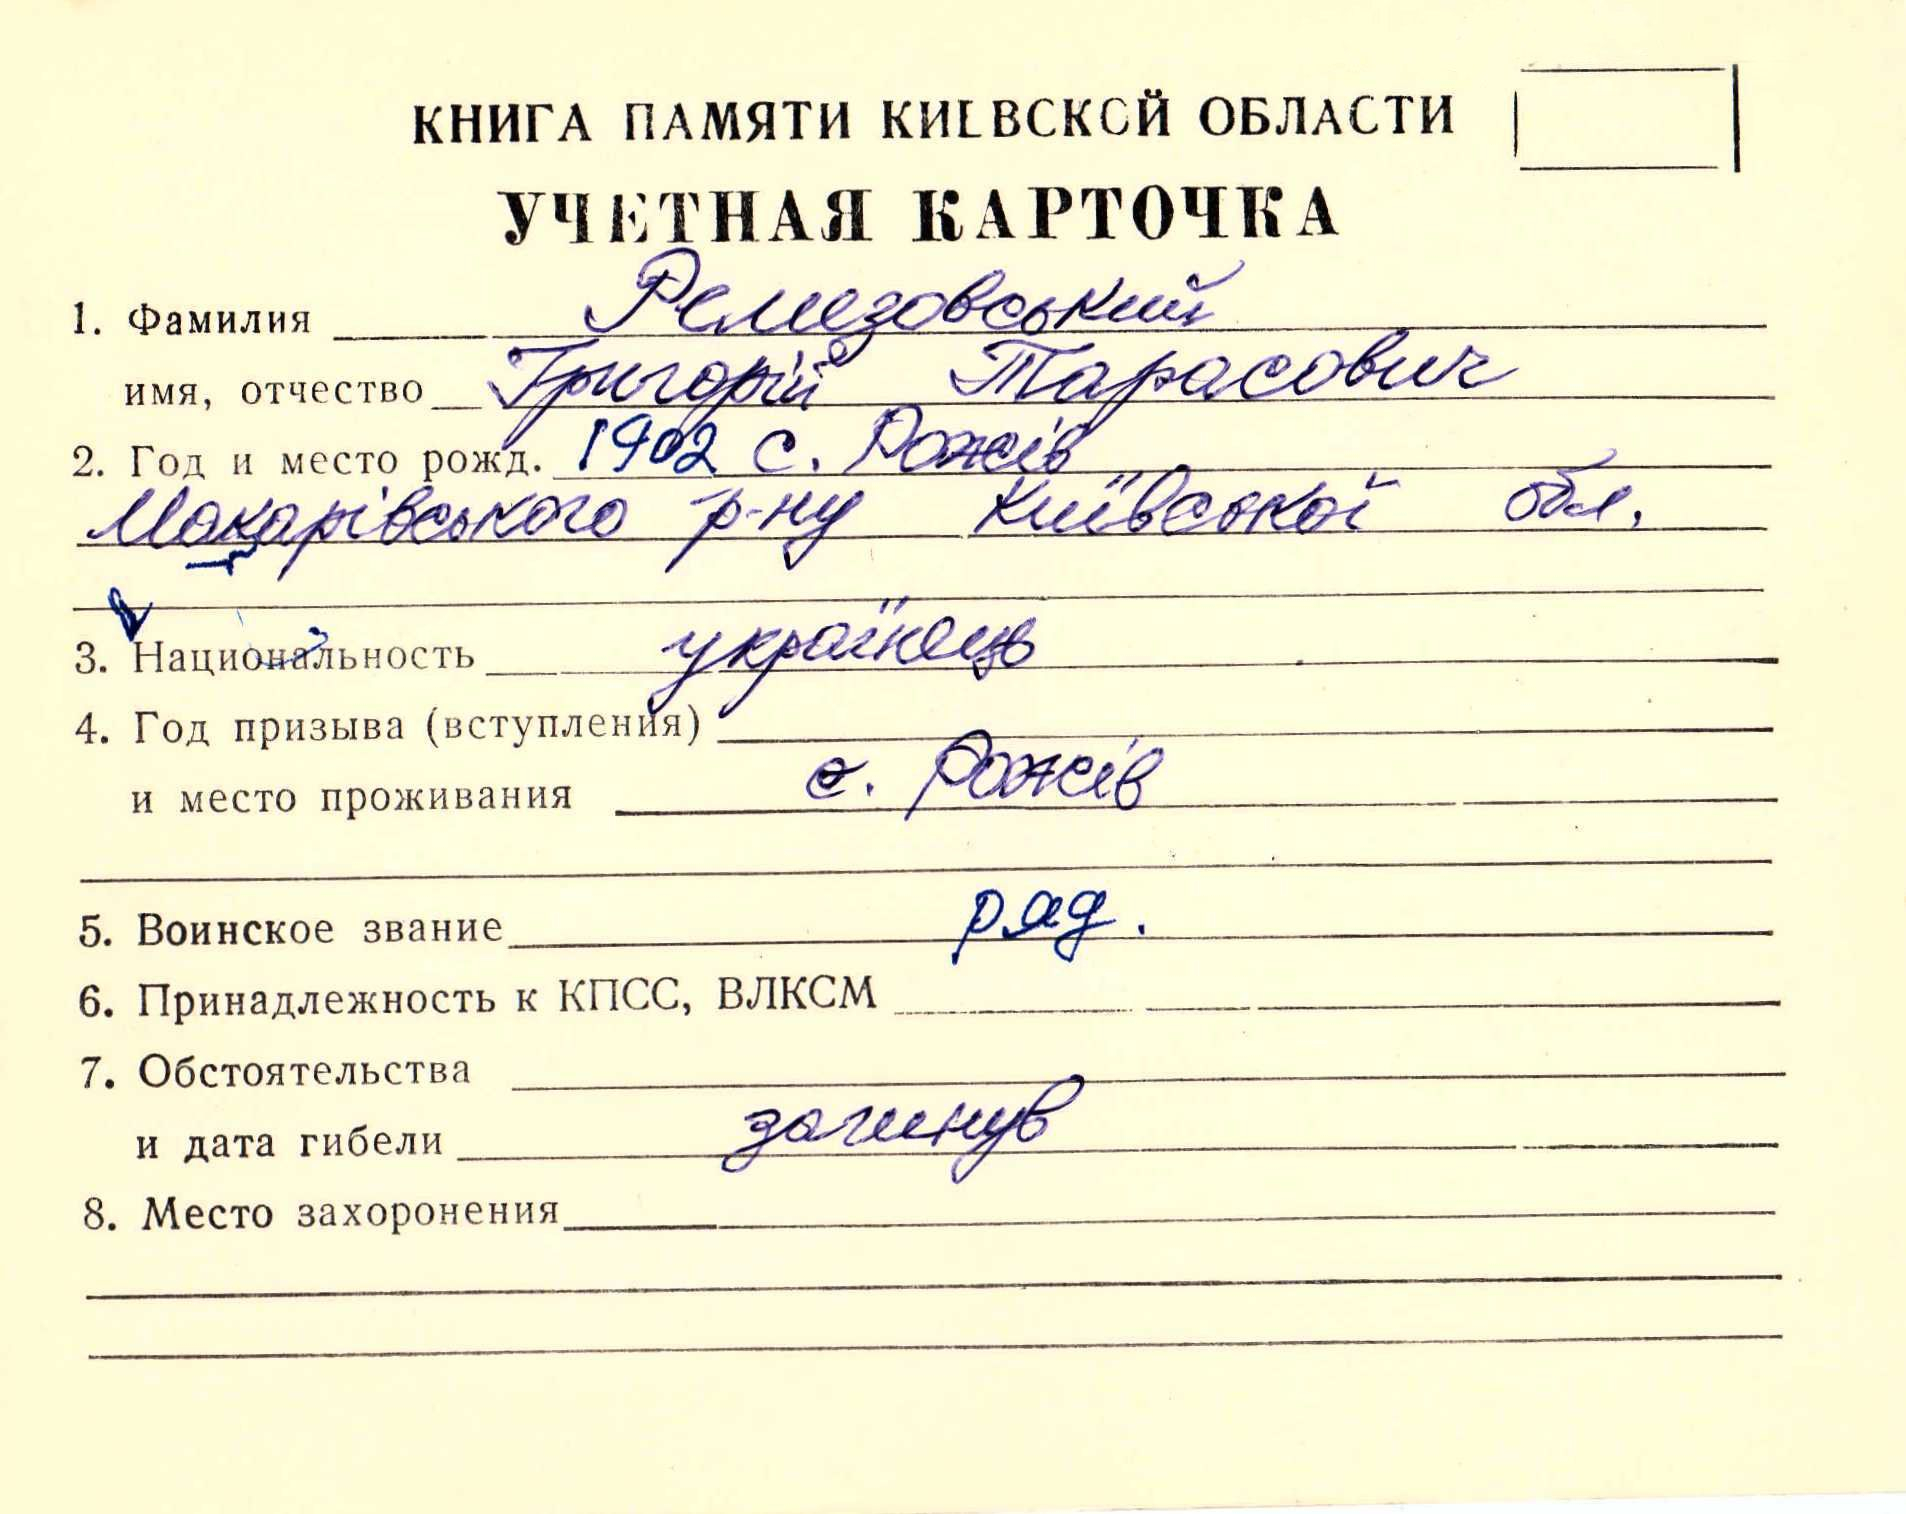 КНИГА ПАМЯТИ КИЕВСКОЙ ОБЛАСТИ
УЧЕТНАЯ КАРТОЧКА
1. Фамилия Ремезовський
имя, отчество Григорій Тарасович
2. Год и место рожд. 1902 с. Рожів
Макарівського р-ну Київської обл.
3. Национальность українець
4. Год призыва (вступления)
и место проживания с. Рожів
5. Воинское звание ряд.
6. Принадлежность к КПСС, ВЛКСМ
7. Обстоятельства
и дата гибели загинув
8. Место захоронения